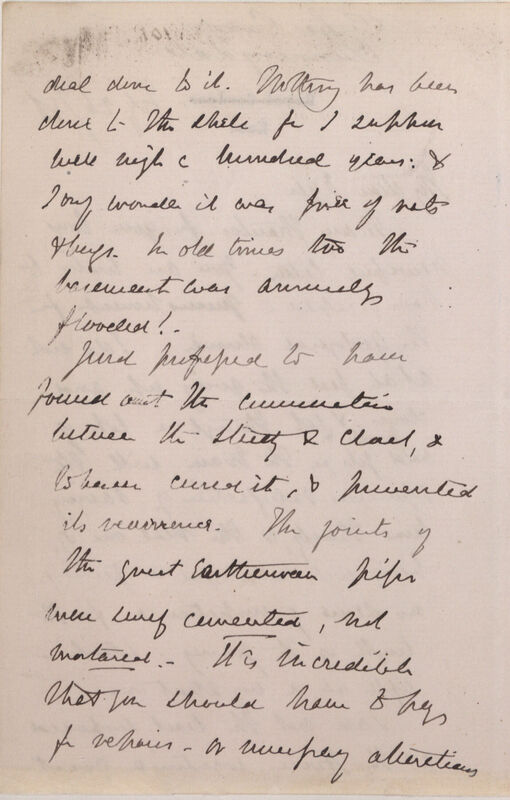 deal done to it. Nothing has been
done to the shell for I suppose
well nigh a hundred years: &
I only wonder it was free of rats
& bugs. In old times too the
basement was annually
flooded!-
Jurd professed to have
found out the communication
between the Study & Closet, &
to have cured it, & prevented
its recurrence. The joints of
the great Earthenware pipes
were cemented, not
mortared. - It is incredible
that you should have to pay
for repairs - or necessary alterations